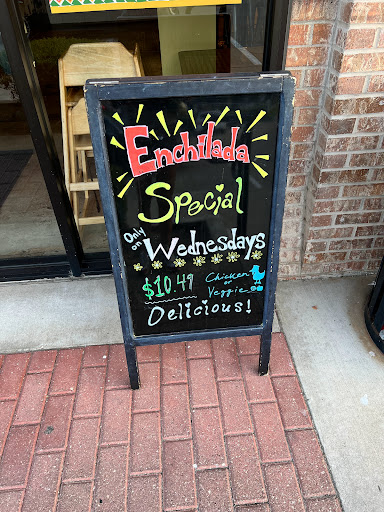 Enchilada
Special
Only on Wednesdays
$10.49 Chicken or Veggie
Delicious!